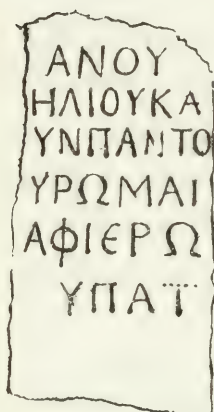 ΑΝΟΥ
ΗΛΙΟΥΚΑ
ΥΝΠΑΝΤΟ
ΥΡΩΜΑΙ
ΑΦΙΕΡΩ
ΥΠΑΤ